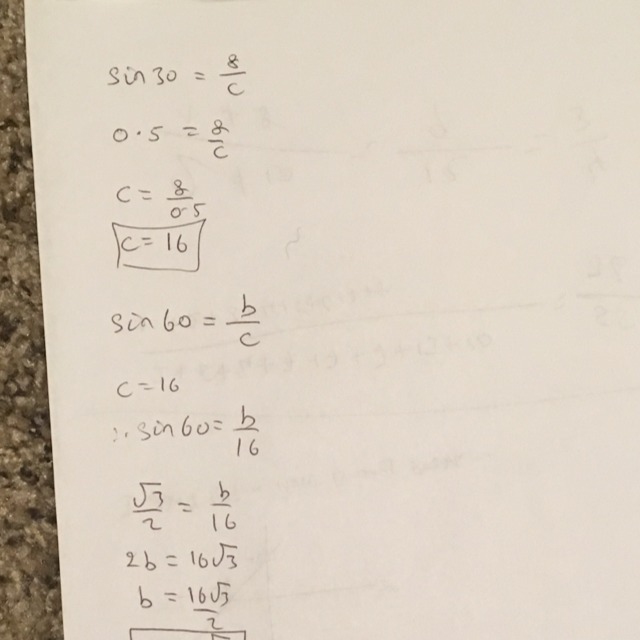 sin 30 = 8/c
0.5 = 8/c
c = 8/0.5
c = 16
sin 60 = b/c
c = 16
∴ sin 60 = b/16
√3/2 = b/16
2b = 16√3
b = 16√3/2